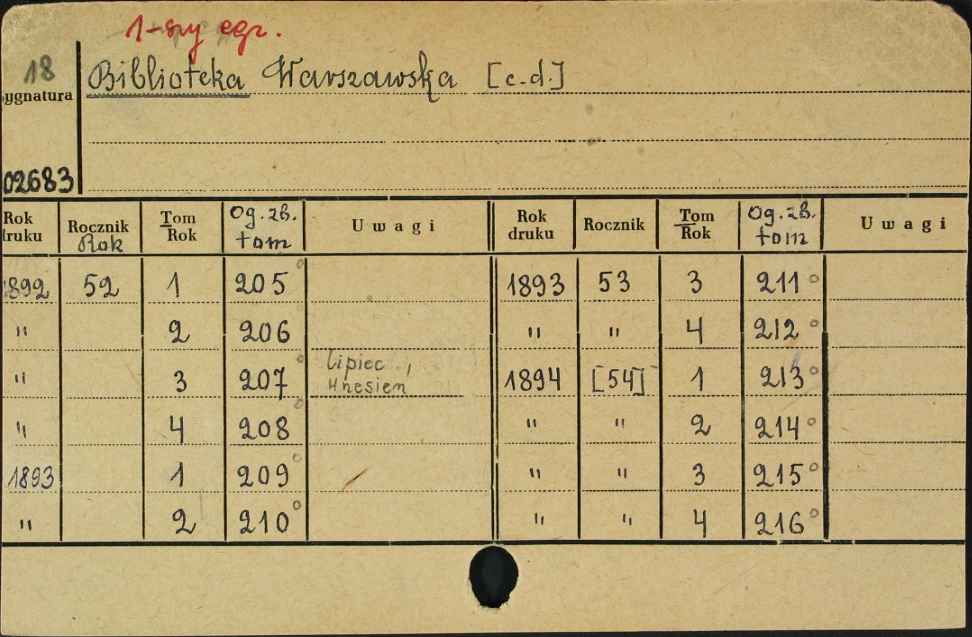 1-szy egz.
18 Biblioteka Warszawska [c.d.]
ygnatura
02683
Rok druku Rocznik Rok Tom Rok Og. zb. tom Uwagi Rok druku Rocznik Tom Rok Og. zb. tom Uwagi
1892 52 1 205 1893 53 3 211
" 2 206 " " 4 212
" 3 207 lipiec, 1894 [54] 1 213
" 4 208 " " 2 214
1893 1 209 " " 3 215
" 2 210 " " 4 216